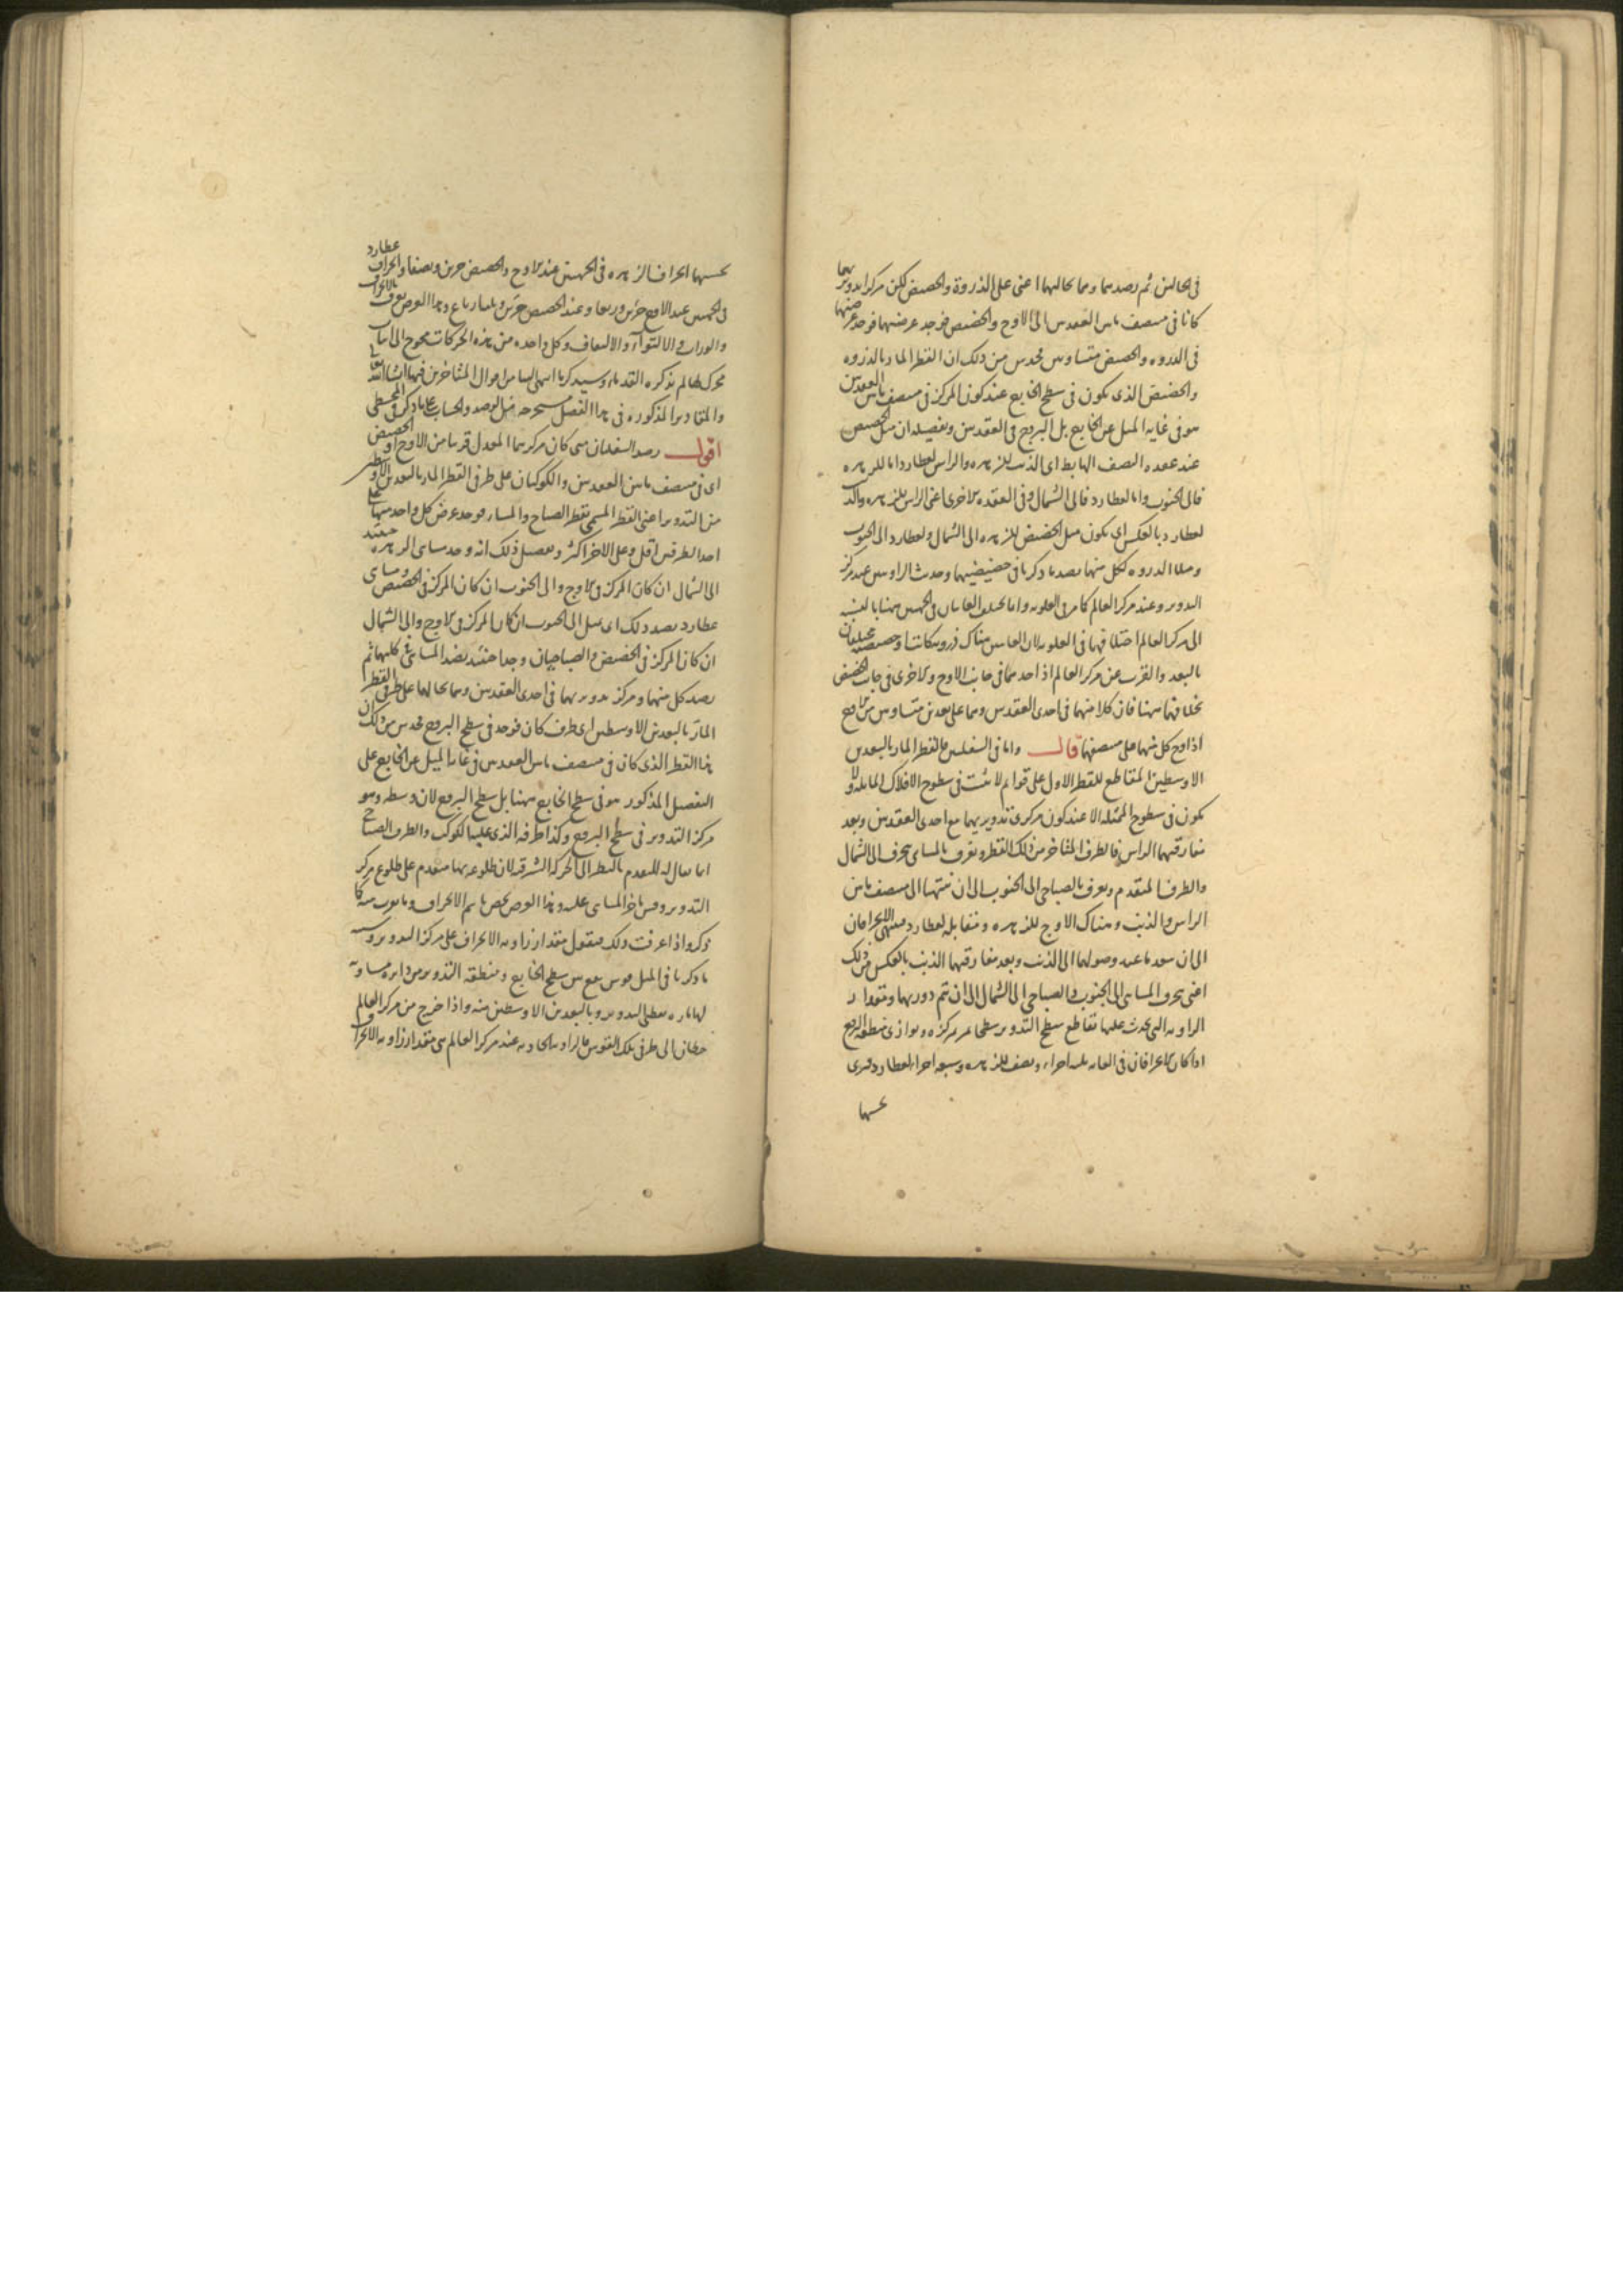 في الحالين ثم رصد هما وهما بحالهما اعنى على الذروة والحضيض لكن مركزا تدويريهما
كانا في منتصف ما بين العقدتين الى الاوج والحضيض فوجد عرضيهما فوجد عرضيهما
في الذروه والحضيض متساويين فحدس من ذلك ان القطر المار بالذروه
والحضيض الذى يكون في سطح الخارج عند كون المركز في منتصف ما بين العقدتين
هو في غايه الميل عن الخارج بل البروج في العقدتين وتفصيله ان ميل الحضيض
عند عقده النصف الهابط اى الذنب للزهره والراس لعطارد اما للزهره
فالى الجنوب واما لعطارد فالى الشمال وفى العقده الاخرى اعنى الراس للزهره والذنب
لعطارد بالعكس اى يكون ميل الحضيض للزهره الى الشمال ولعطارد الى الجنوب
وميلا الذروه لكل منهما بضد ما ذكرنا في حضيضيهما وحدث الزاويتين عند مركز
التدوير وعند مركز العالم كما مر في العلويه واما تختلف الغايتان في الجهتين هنا بالنسبه
الى مركز العالم اختلافهما في العلويه لان الغايتين هناك ذرويتين كانتا او حضيضيتين مختلفتان
بالبعد والقرب عن مركز العالم اذ احدهما في جانب الاوج والاخرى في جانب الحضيض
بخلافهما هنا فان كلا منهما في احدى العقدتين وهما على بعدين متساويين من الاوج
اذ اوج كل منهما على منتصفهما قال واما في السفليين فالقطر المار بالبعدين
الاوسطين المقاطع للقطر الاول على قوائم لا يثبت في سطوح الافلاك المايله ولا
يكون في سطوح الممثله الا عند كون مركزى تدويريهما مع احدى العقدتين وبعد
مفارقتهما الراس فالطرف المتاخر من ذلك القطر ويعرف بالمسائى ينحرف الى الشمال
والطرف المتقدم ويعرف بالصباحى الى الجنوب الى ان ينتهيا الى منتصف ما بين
الراس والذنب وهناك الاوج للزهره ومقابله لعطارد فينتهى الانحرافان
الى ان ينعدما عند وصولهما الى الذنب وبعد مفارقتهما الذنب بالعكس من ذلك
اعنى ينحرف المسائى الى الجنوب والصباحى الى الشمال الى ان يتم دوريهما ومقدار
الزاويه التى يحدث عليها تقاطع سطح التدوير سطحا يمر بمركزه ويوازى منطقه البروج
اذا كان الانحرافان في الغايه ثلثه اجزاء ونصف للزهره وسبعه اجزاء لعطارد فيرى
بحسبها
بحسبها انحراف الزهره في الجهتين عند الاوج والحضيض جزئين ونصفا وانحراف عطارد
في الجهتين عند الاوج جزئين وربعا وعند الحضيض جزئين وثلثه ارباع وهذا العرض يعرف بالانحراف
والوراب والالتواء والالتفاف وكل واحده من هذه الحركات يحوج الى اثبات
محرك لها لم يذكره القدماء وسيذكر ما انتهى الينا من اقوال المتاخرين فيها ان شاء الله تعالى
والمقادير المذكوره في هذا الفصل مستخرجه من الرصد والحساب على ما ذكر في المجسطى
اقول رصد السفليان متى كان مركزهما المعدل قريبا من الاوج او الحضيض
اى في منتصف ما بين العقدتين والكوكبان على طرفى القطر المار بالبعدين الاوسطين
من التدوير اعنى القطر المسمى بقطر الصباح والمساء فوجد عرض كل واحد منهما على
احد الطرفين اقل وعلى الاخر اكثر وتفصيل ذلك انه وجد مسائى الزهره حينئذ
الى الشمال ان كان المركز في الاوج والى الجنوب ان كان المركز في الحضيض ومسائى
عطارد بضد ذلك اى يميل الى الجنوب ان كان المركز في الاوج والى الشمال
ان كان المركز في الحضيض والصباحيان وجدا حينئذ بضد المسائى في كليهما ثم
رصد كل منهما ومركز تدويريهما في احدى العقدتين وهما بحالهما على طرفى القطر
المار بالبعدين الاوسطين اى طرف كان فوجد في سطح البروج فحدس من ذلك ان
هذا القطر الذى كان في منتصف ما بين العقدتين في غايه الميل عن الخارج على
التفصيل المذكور هو في سطح الخارج هنا بل سطح البروج لان وسطه وهو
مركز التدوير في سطح البروج وكذا طرفه الذى عليه الكوكب والطرف الصباحى
انما يقال له المتقدم بالنظر الى الحركه الشرقيه لان طلوعه بها متقدم على طلوع مركز
التدوير وقس تاخر المسائى عليه وهذا العرض يخص باسم الانحراف وما يوب منه كما
ذكر واذا عرفت ذلك فنقول مقدار زاويه الانحراف على مركز التدوير وبـ
ما ذكرنا في الميل قوس تقع بين سطح الخارج ومنطقه التدوير من دايره مساويه
لها ماره بقطبى التدوير وبالبعدين الاوسطين منه واذا خرج من مركز العالم
خطان الى طرفى تلك القوس فالزاويه الحادثه عند مركز العالم هى مقدار زاويه الانحراف